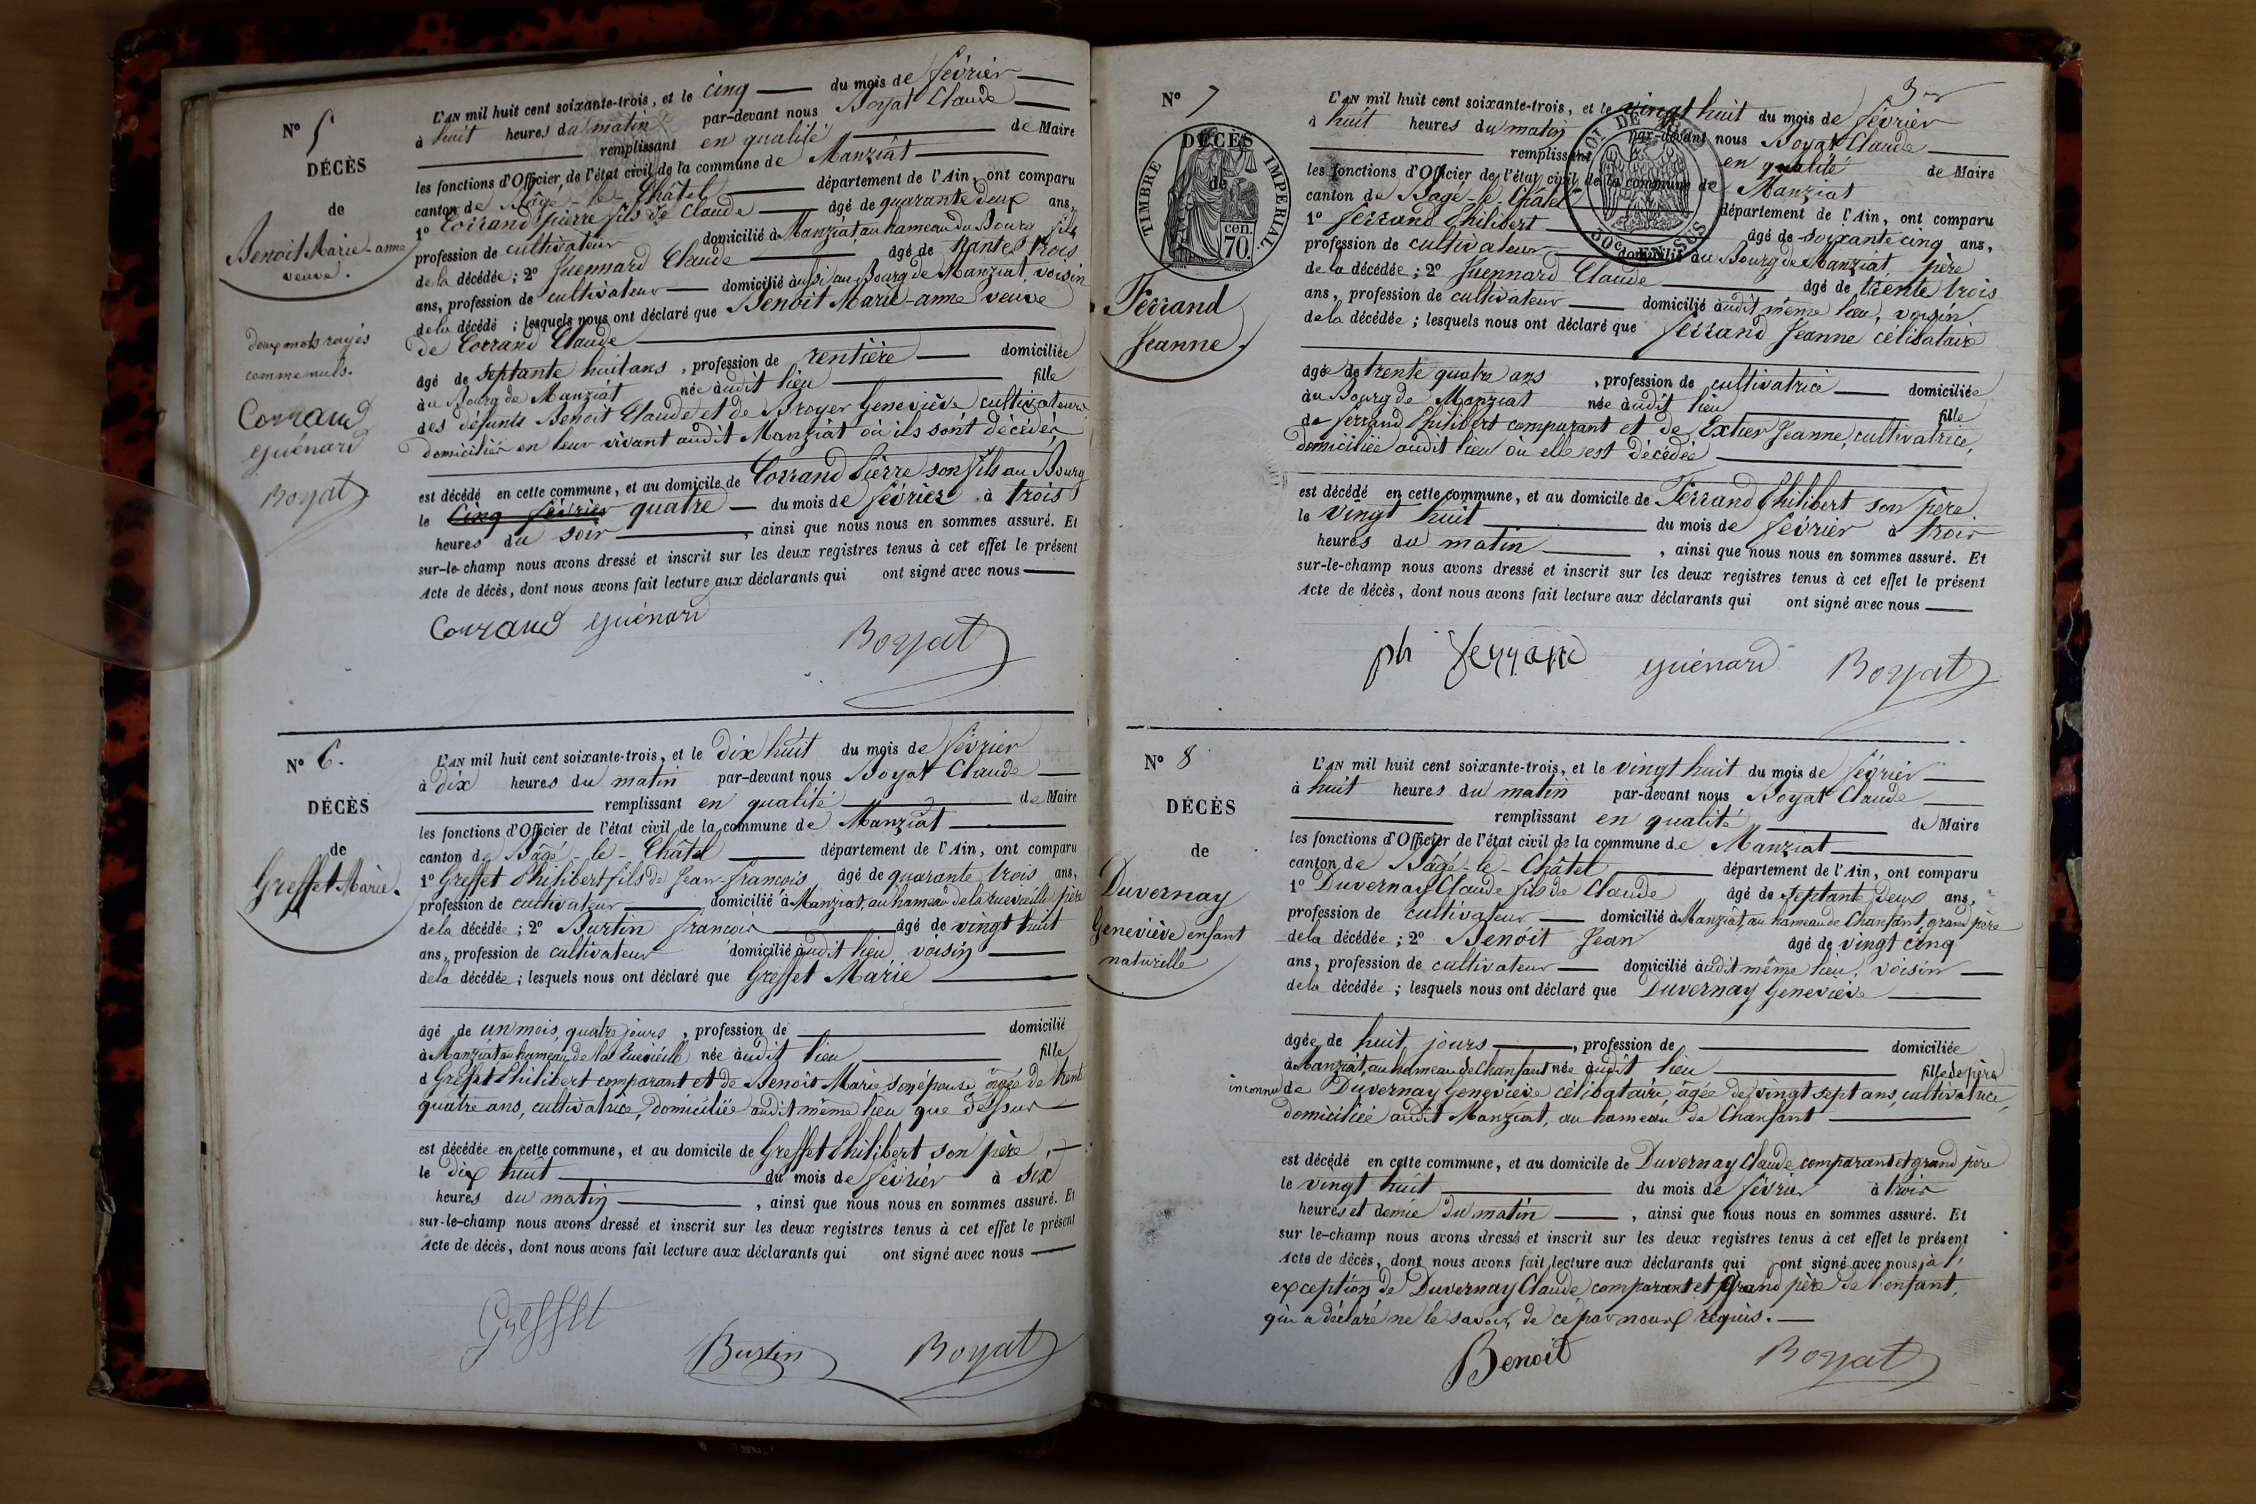 N° 5
DÉCÈS
de
Benoit Marie-anne
veuve.
deux mots rayés
comme nuls.
Corrand
Guénard
Boyat
L'AN mil huit cent soixante-trois, et le cinq du mois de février
à huit heures du matin par-devant nous Boyat Claude
remplissant en qualité de Maire
les fonctions d'Officier de l'état civil de la commune de Manziat
canton de Bâgé-le-Châtel département de l'Ain, ont comparu
1° Corrand Pierre fils de Claude âgé de quarante deux ans,
profession de cultivateur domicilié à Manziat, au hameau du Bourg fils
de la décédée; 2° Guennard Claude âgé de trente trois
ans, profession de cultivateur domicilié aussi au Bourg de Manziat voisin
de la décédé ; lesquels nous ont déclaré que Benoit Marie-anne veuve
de Corrand Claude
âgé de septante huit ans, profession de rentière domiciliée
au Bourg de Manziat née audit lieu fille
des défunts Benoit Claude et de Broyer Geneviève cultivateurs
domiciliés en leur vivant audit Manziat où ils sont décédés
est décédé en cette commune, et au domicile de Corrand Pierre son fils au Bourg
le cinq février quatre du mois de février à trois
heures du soir, ainsi que nous nous en sommes assuré. Et
sur-le-champ nous avons dressé et inscrit sur les deux registres tenus à cet effet le présent
Acte de décès, dont nous avons fait lecture aux déclarants qui ont signé avec nous
Corrand Guénard
Boyat
N° 6.
DÉCÈS
de
Greffet Marie.
L'AN mil huit cent soixante-trois, et le dix huit du mois de février
à dix heures du matin par-devant nous Boyat Claude
remplissant en qualité de Maire
les fonctions d'Officier de l'état civil de la commune de Manziat
canton de Bâgé-le-Châtel département de l'Ain, ont comparu
1° Greffet Philibert fils de Jean-François âgé de quarante trois ans,
profession de cultivateur domicilié à Manziat, au hameau de la rue vieille père
de la décédée ; 2° Burtin françois âgé de vingt huit
ans, profession de cultivateur domicilié audit lieu, voisin
de la décédée ; lesquels nous ont déclaré que Greffet Marie
âgé de un mois, quatre jours, profession de domicilié
à Manziat au hameau de la rue vieille née audit lieu fille
d Greffet Philibert comparant et de Benoit Marie son épouse âgée de trente
quatre ans, cultivatrice, domiciliée audit même lieu que dessus
est décédée en cette commune, et au domicile de Greffet Philibert son père,
le dix huit du mois de février à six
heures du matin, ainsi que nous nous en sommes assuré. Et
sur-le-champ nous avons dressé et inscrit sur les deux registres tenus à cet effet le présent
Acte de décès, dont nous avons fait lecture aux déclarants qui ont signé avec nous
Greffet
Burtin Boyat
N° 7
DÉCÈS
de
TIMBRE IMPÉRIAL.
cen.
70.
Ferrand
Jeanne.
L'AN mil huit cent soixante-trois, et le vingt huit du mois de février
à huit heures du matin par-devant nous Boyat Claude
remplissant en qualité de Maire
les fonctions d'Officier de l'état civil de la commune de Manziat
canton de Bagé-le-Châtel département de l'Ain, ont comparu
1° ferrand Philibert âgé de soixante cinq ans,
profession de cultivateur domicilié au Bourg de Manziat père
de la décédée ; 2° Guennard Claude âgé de trente trois
ans, profession de cultivateur domicilié audit même lieu, voisin
de la décédée ; lesquels nous ont déclaré que ferrand Jeanne célibataire
âgée de trente quatre ans, profession de cultivatrice domiciliée
au Bourg de Manziat née audit lieu fille
de ferrand Philibert comparant et de Extier Jeanne, cultivatrice,
domiciliée audit lieu où elle est décédée
est décédé en cette commune, et au domicile de Ferrand Philibert son père
le vingt huit du mois de février à trois
heures du matin, ainsi que nous nous en sommes assuré. Et
sur-le-champ nous avons dressé et inscrit sur les deux registres tenus à cet effet le présent
Acte de décès, dont nous avons fait lecture aux déclarants qui ont signé avec nous
ph ferrand Guénard Boyat
N° 8
DÉCÈS
de
Duvernay
Geneviève enfant
naturelle
L'AN mil huit cent soixante-trois, et le vingt huit du mois de février
à huit heures du matin par-devant nous Boyat Claude
remplissant en qualité de Maire
les fonctions d'Officier de l'état civil de la commune de Manziat
canton de Bâgé-le-Châtel département de l'Ain, ont comparu
1° Duvernay Claude fils de Claude âgé de septante deux ans,
profession de cultivateur domicilié à Manziat, au hameau de Chanfant, grand père
de la décédée ; 2° Benoit Jean âgé de vingt cinq
ans, profession de cultivateur domicilié audit même lieu, voisin
de la décédée ; lesquels nous ont déclaré que Duvernay Geneviève
âgée de huit jours, profession de domiciliée
à Manziat, au hameau de Chanfant née audit lieu fille de père
inconnu de Duvernay Geneviève célibataire, âgée de vingt sept ans, cultivatrice,
domiciliée audit Manziat, au hameau de Chanfant
est décédé en cette commune, et au domicile de Duvernay Claude comparant et grand père
le vingt huit du mois de février à trois
heures et demie du matin, ainsi que nous nous en sommes assuré. Et
sur le-champ nous avons dressé et inscrit sur les deux registres tenus à cet effet le présent
Acte de décès, dont nous avons fait lecture aux déclarants qui ont signé avec nous, à l'
exception de Duvernay Claude, comparant et Grand père de l'enfant,
qui a déclaré ne le savoir, de ce par nous requis.
Benoit Boyat